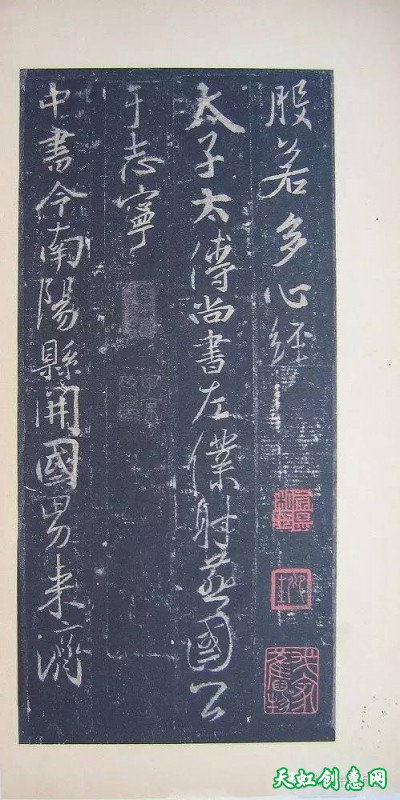 般若多心経
太子太傅尚書左僕射燕國公
于志寧
中書令南陽縣開國男来濟
天虹创惠网